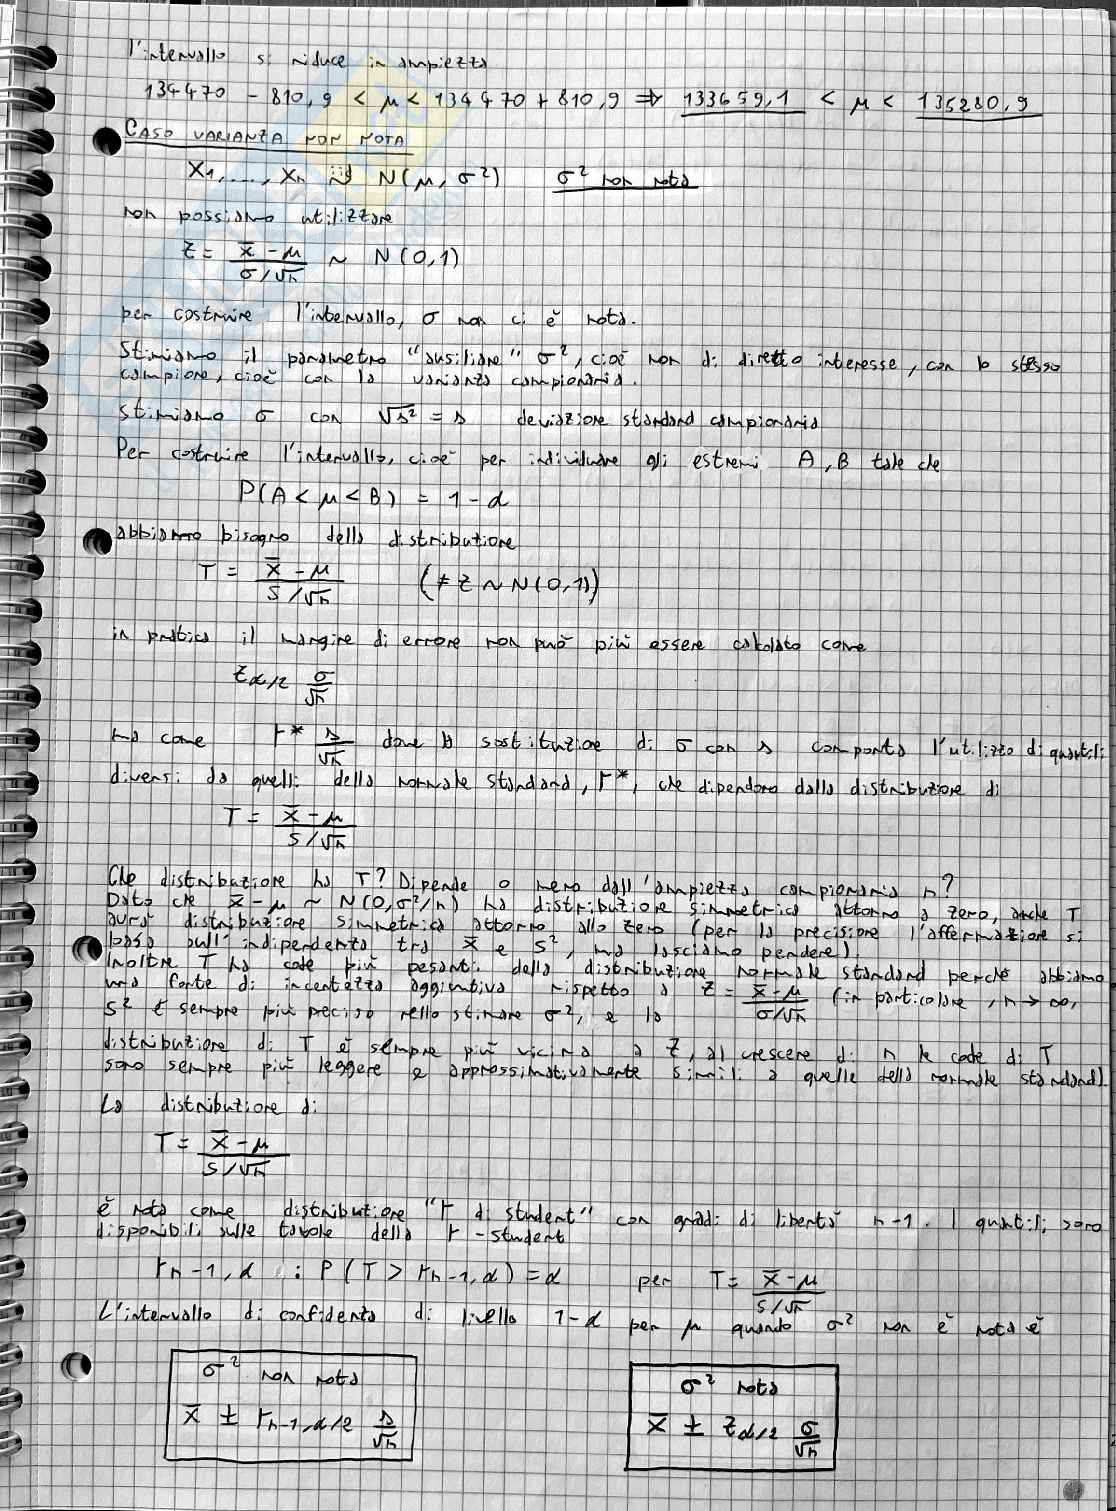 l'intervallo si riduce in ampiezza
134470 - 810,9 < μ < 134470 + 810,9 ⇒ 133659,1 < μ < 135280,9
CASO VARIANZA NON NOTA
X1, ...., Xn iid N(μ, σ²) σ² non nota
non possiamo utilizzare
Z = (x̄ - μ)/(σ/√n) ~ N(0,1)
per costruire l'intervallo, σ non ci è nota.
Stimiamo il parametro "ausiliare" σ², cioè non di diretto interesse, con lo stesso
campione, cioè con la varianza campionaria.
stimiamo σ con √s² = s deviazione standard campionaria
Per costruire l'intervallo, cioè per individuare gli estremi A, B tale che
P(A < μ < B) = 1 - α
abbiamo bisogno della distribuzione
T = (x̄ - μ)/(S/√n) (≠ Z ~ N(0,1))
in pratica il margine di errore non può più essere calcolato come
zα/2 σ/√n
ma come t* s/√n dove la sostituzione di σ con s comporta l'utilizzo di quantili
diversi da quelli della normale standard, t*, che dipendono dalla distribuzione di
T = (x̄ - μ)/(S/√n)
Che distribuzione ha T? Dipende o meno dall'ampiezza campionaria n?
Dato che x̄ - μ ~ N(0, σ²/n) ha distribuzione simmetrica attorno a zero, anche T
avrà distribuzione simmetrica attorno allo zero (per la precisione l'affermazione si
basa sull'indipendenta tra x̄ e S², ma lasciamo perdere).
Inoltre T ha code più pesanti della distribuzione normale standard perché abbiamo
una fonte di incertezza aggiuntiva rispetto a Z = (x̄ - μ)/(σ/√n) (in particolare, n → ∞,
S² è sempre più preciso nello stimare σ², e la
distribuzione di T è sempre più vicina a Z, al crescere di n le code di T
sono sempre più leggere e approssimativamente simili a quelle della normale standard).
La distribuzione di
T = (x̄ - μ)/(S/√n)
è nota come distribuzione "t di student" con gradi di libertà n-1. I quantili sono
disponibili sulle tavole della t-student
tn-1,α : P(T > tn-1,α) = α per T = (x̄ - μ)/(S/√n)
L'intervallo di confidenza di livello 1-α per μ quando σ² non è nota è
σ² non nota
x̄ ± tn-1,α/2 s/√n
σ² nota
x̄ ± zα/2 σ/√n